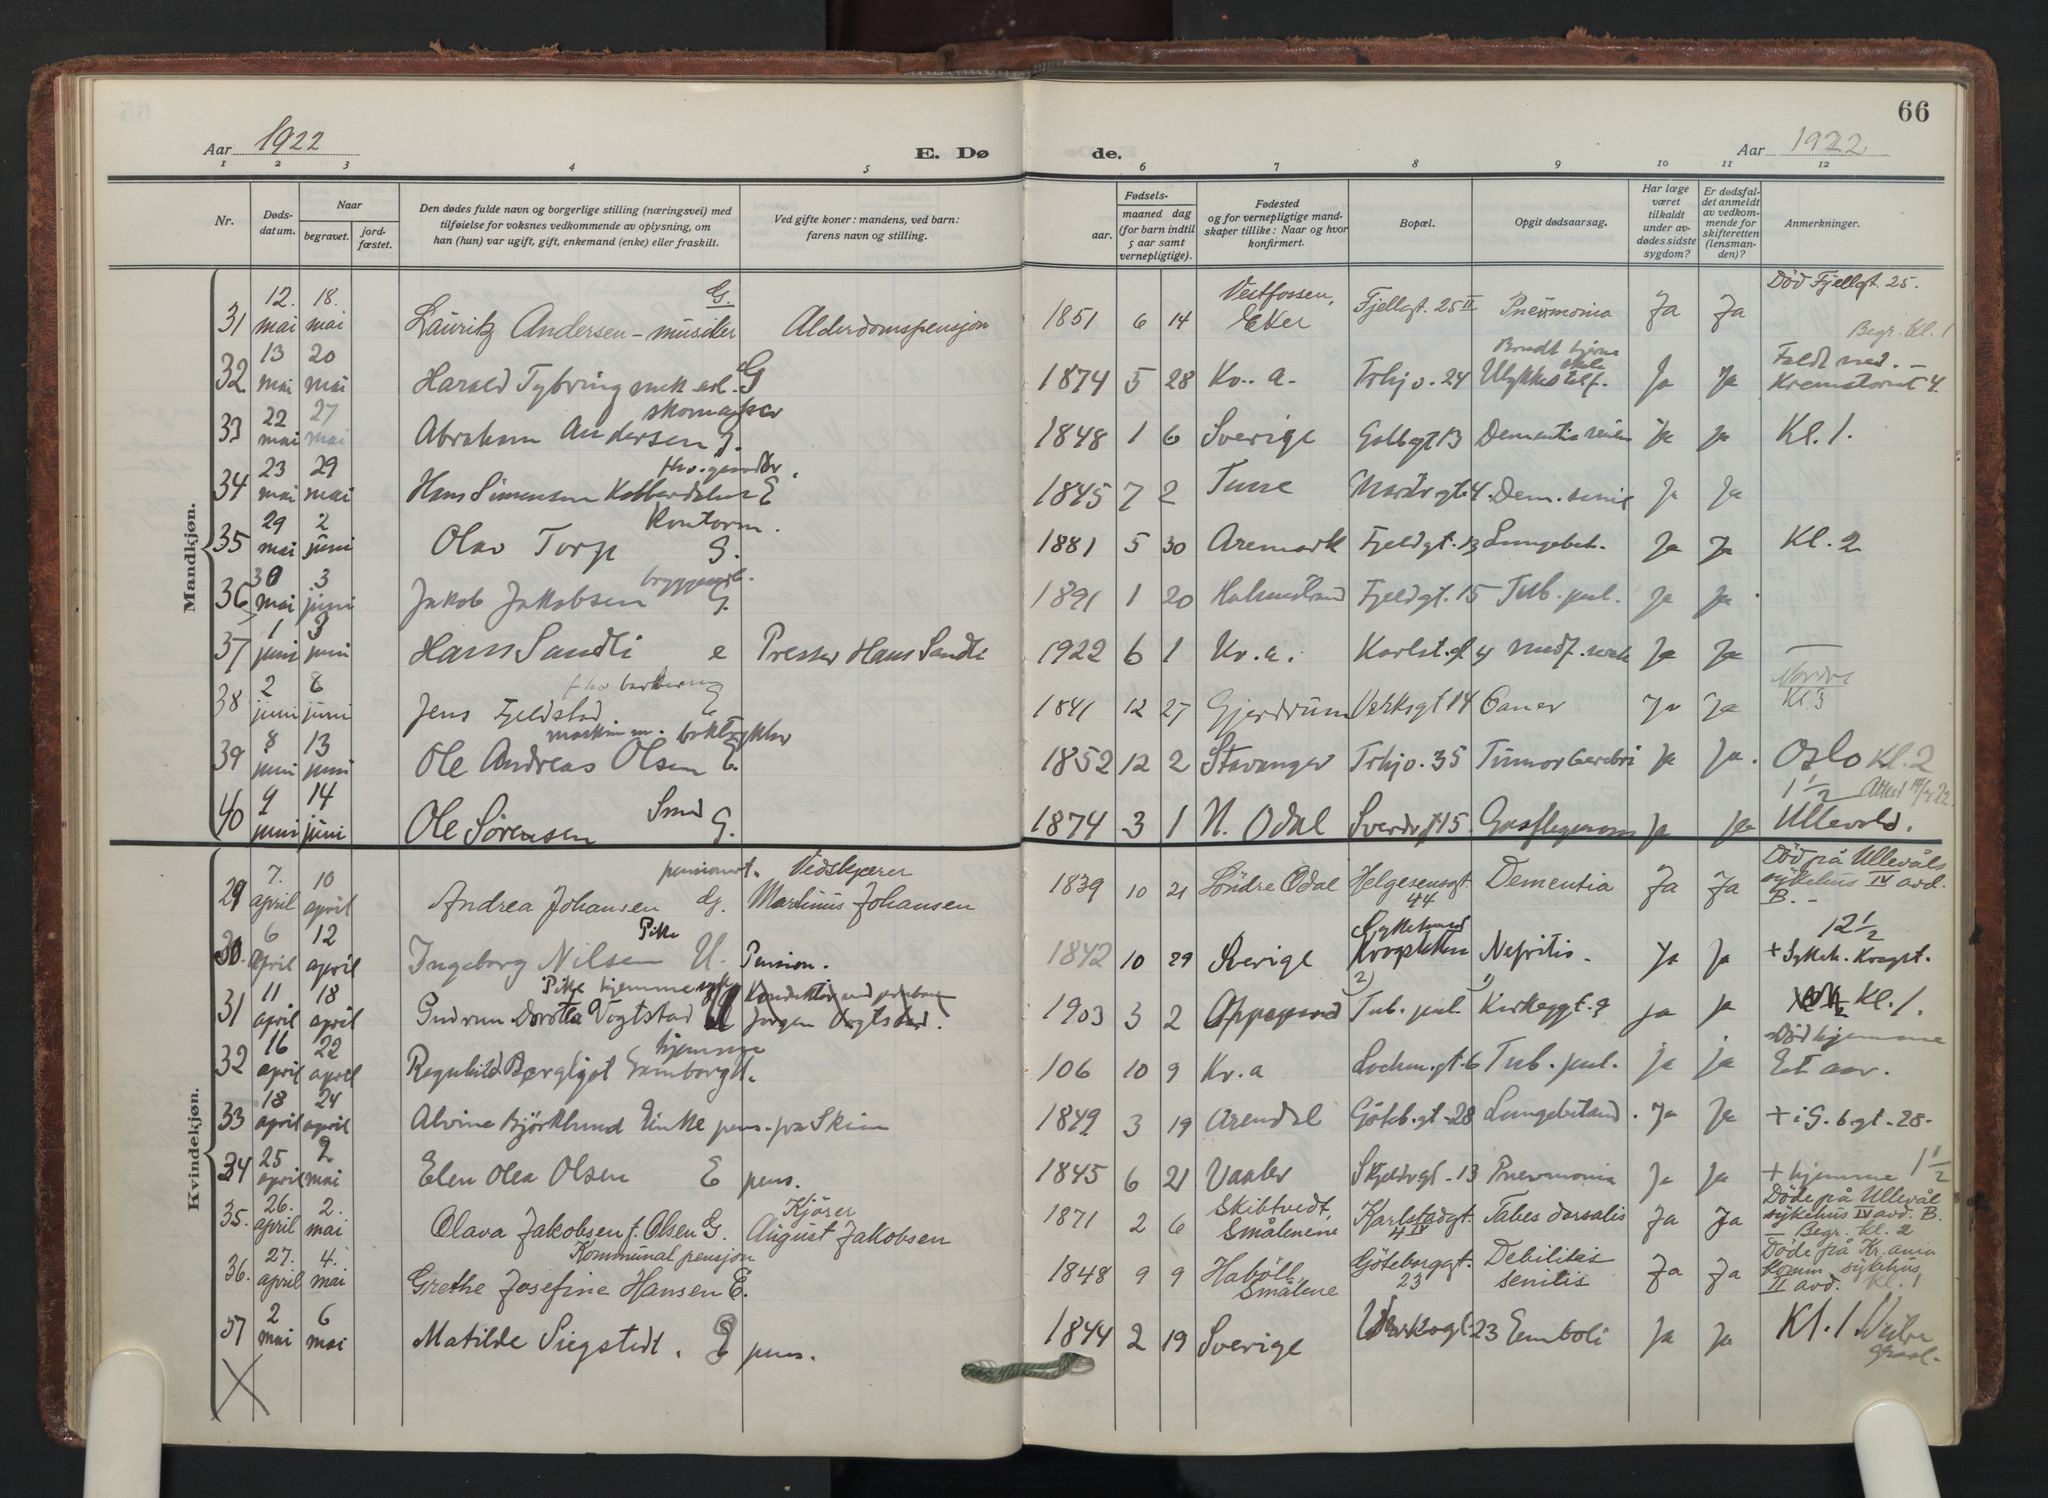 66
Aar 1922
E. Dø
de.
Aar 1922
1 2 3 4 5 6 7 8 9 10 11 12
Nr.
Døds-
datum.
Naar
begravet.
jord-
fæstet.
Den dødes fulde navn og borgerlige stilling (næringsvei) med
tilføielse for voksnes vedkommende av oplysning, om
han (hun) var ugift, gift, enkemand (enke) eller fraskilt.
Ved gifte koner: mandens, ved barn:
farens navn og stilling.
Fødsels-
aar.
maaned dag
(for barn indtil
5 aar samt
vernepligtige).
Fødested
og for vernepligtige mand-
skaper tillike: Naar og hvor
konfirmert.
Bopæl.
Opgit dødsaarsag.
Har læge
været
tilkaldt
under av-
dødes sidste
sygdom?
Er dødsfal-
det anmeldt
av vedkom-
mende for
skifteretten
(lensman-
den)?
Anmerkninger.
Mandkjøn.
31 12. mai 18. mai Lauritz Andersen - musiker G. Alderdomspensjon 1851 6 14 Vestfossen, Eker Fjellgt. 25 II Pneumonia Ja Ja Død Fjellgt. 25. Begr. kl. 1
32 13 mai 20 mai Harald Tybring G 1874 5 28 Kr. a. Trhj v. 24 Ja Ja Faldt ned. - Krematoriet 4.
33 22 mai 27 mai Abraham Andersen skomaker g. 1848 1 6 Sverige 13 Dementia Ja Ja Kl. 1.
34 23 mai 29 mai Hans Simensen E 1845 7 2 Tune 4. Dem. senil Ja Ja
35 29 mai 2 juni Olav Torp Kontorm. G. 1881 5 30 Aremark Fjeldgt. 13 Lungebet. Ja Ja Kl. 2
36 30 mai 3 juni Jakob Jakobsen G. 1891 1 20 Holmestrand Fjeldgt. 15 Tub. pul. Ja Ja
37 1 juni 3 juni Hans Sandli e Presser Hans Sandli 1922 6 1 Kr. a. Karlst. gt 4 medf. Ja Ja
38 2 juni 8 juni Jens Fjeldstad E 1841 12 27 Gjerdrum Verksgt 14 Cancer Ja Ja Nordre Kl. 3
39 8 juni 13 juni Ole Andreas Olsen maskinm. boktrykker E. 1852 12 2 Stavanger Trhj v. 35 Tumor Cerebri Ja Ja. Oslo Kl. 2
40 9 juni 14 juni Ole Sørensen Smed G. 1874 3 1 N. Odal 15 Ja Ja 1 1/2 Ullevold.
Kvindekjøn.
29 7. april 10 april Andrea Johansen pensionert. g. Vedskjærer Martinius Johansen 1839 10 21 Söndre Odal Helgesensgt. 44 Dementia Ja Ja Død på Ullevåls sykehus IV avd. B. -
30. 6 april 12 april Ingeborg Nilsen Pike U. Pension. 1842 10 29 Sverige Sykehuset Kropskken Nefritis. Ja Ja 12 1/2 + Sykeh. Kragst.
31 11 april 18 april Gudrun Dorotea Vogtstad Pike hjemme Jørgen Vogtstad. 1903 3 2 Oppegaard 2) Tub. pul 1) Kirkeggt. 9 Ja Ja Kl. 1.
32 16 april 22 april Ragnhild Bergljot hjemme U. 106 10 9 Kr. a Lochm. gt. 6 Tub. pul. ja ja Død hjemme Et aar.
33 18 april 24 april Alvine Björklund Enke pens. fra Skien 1849 3 19 Arendal Göteb. gt. 28 Lungebetænd. Ja Ja + i G. b. gt. 28.
34 25 april 2 mai Elen Olea Olsen E pens. 1845 6 21 Vaaler 13 Pneumonia Ja Ja + hjemme 1 1/2
35. 26. april 2. mai Olava Jakobsen f. Olsen G. Kjörer August Jakobsen 1871 2 6 Skibtvedt, Smålenene Karlstadgt. 4 IV Tabes dorsalis Ja Ja Döde på Ullevål sykehus IV avd. B. - Begr. kl. 2
36. 27. april 4. mai Kommunal pensjon Grethe Josefine Hansen E. 1848 9 9 Haböll, Smålene Göteborggt. 23 Debilitas senilis Ja Ja Döde på Kr. ania Komm. sykehus II avd. Kl. 1
37 2 mai 6 mai Matilde Siegstedt. E pens. 1844 2 19 Sverige 23 Emboli Ja Ja Kl. 1. Vestre